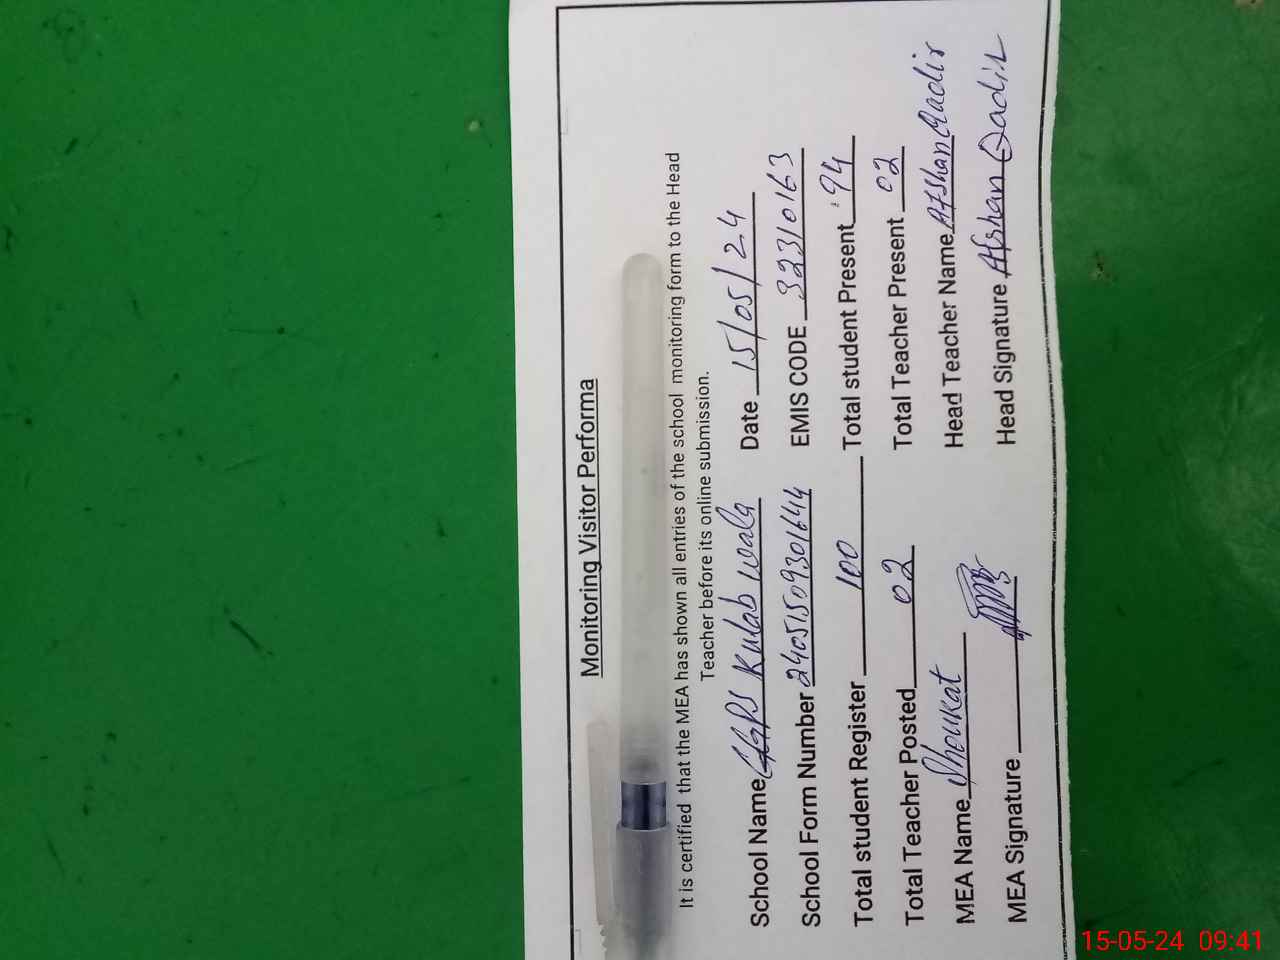 Monitoring Visitor Performa
It is certified that the MEA has shown all entries of the school monitoring form to the Head
Teacher before its online submission.
School Name GGPS Kulab wala Date 15/05/24
School Form Number 24051509301644 EMIS CODE 32310163
Total student Register 100 Total student Present 94
Total Teacher Posted 02 Total Teacher Present 02
MEA Name Shoukat Head Teacher Name Afshan Qadir
MEA Signature Head Signature Afshan Qadir
15-05-24 09:41